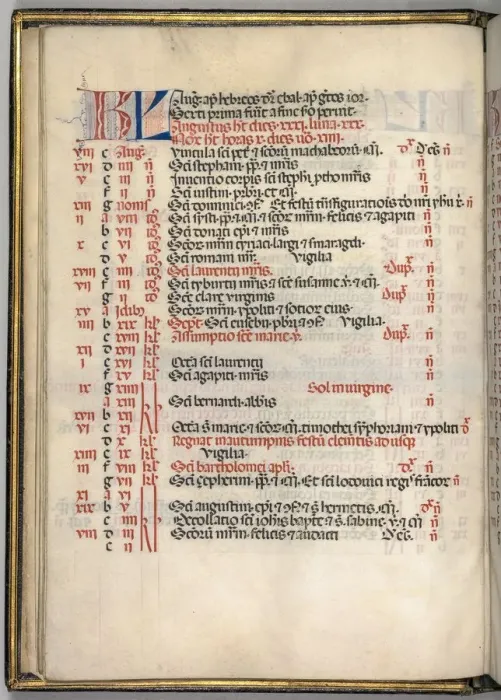 KL Aug. ap hebreos dr ebal. ap gros ior.
Sexti prima fuit a fine sed perint.
Augustus ht dies .xxxi. luna .xxx.
Nox ht horas .x. dies uo .xiiii.
viii c Aug. Vincula sci pet. & scorum machabeorum. m. Ds. n
xvi d iiii n Sci stephani. pp. & mris n
v e iii n Inuentio corpis sci stephi. ptho mris n
f ii n Sci iustini. pbri. et m. n
xiii g nons Sci dominici. 9f. Et festu tnsfiguratiois n
ii a viii id Sci systi. pp. & m. & scor mrm. felicis & agapiti n
b vii id Sci donati epi & mris n
x c vi id Scor mrm cyriaci. largi & smaragdi. n
d v id Sci romani mr. Vigilia
xviii e iiii id Sci laurentii mris. Dup. n
vii f iii id Sci tyburtii mris & sce susanne v. & m. n
g ii id Sce clare virginis Dup. n
xv a idib Scor mrm. ypoliti & socior eius. n
iiii b xix kl Sept. Sci eusebii pbri & 9f. Vigilia. n
c xviii kl Assumptio sce marie v. Dup. n
xii d xvii kl
i e xvi kl Octa sci laurentii n
f xv kl Sci agapiti mris n
ix g xiiii Sol in uirgine.
a xiii Sci bernardi abbis n
xvii b xii
vi c xi Octa s. marie & scor m. timothei. symphoriani & ypoliti d
d x kl Regnat in autumpnis festu clemtis ad usque
xiiii e ix kl Vigilia.
iii f viii kl Sci bartholomei apli. n
g vii Sci cepherini. pp. & m. Et sci lodouici regis francor n
xi a vi
xix b v Sci augustini. epi. & 9f. & s. hermetis. m. n
c iiii Decollatio sci iohis bapte & s. sabine. v. & m n
viii d iii Scoru mrm. felicis & audacti Ds. n
e ii